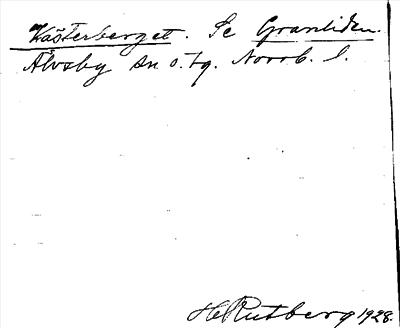 Västerberget. Se Granliden.
Älvsby sn o. tg. Norrb. l.
H Rutberg 1928.